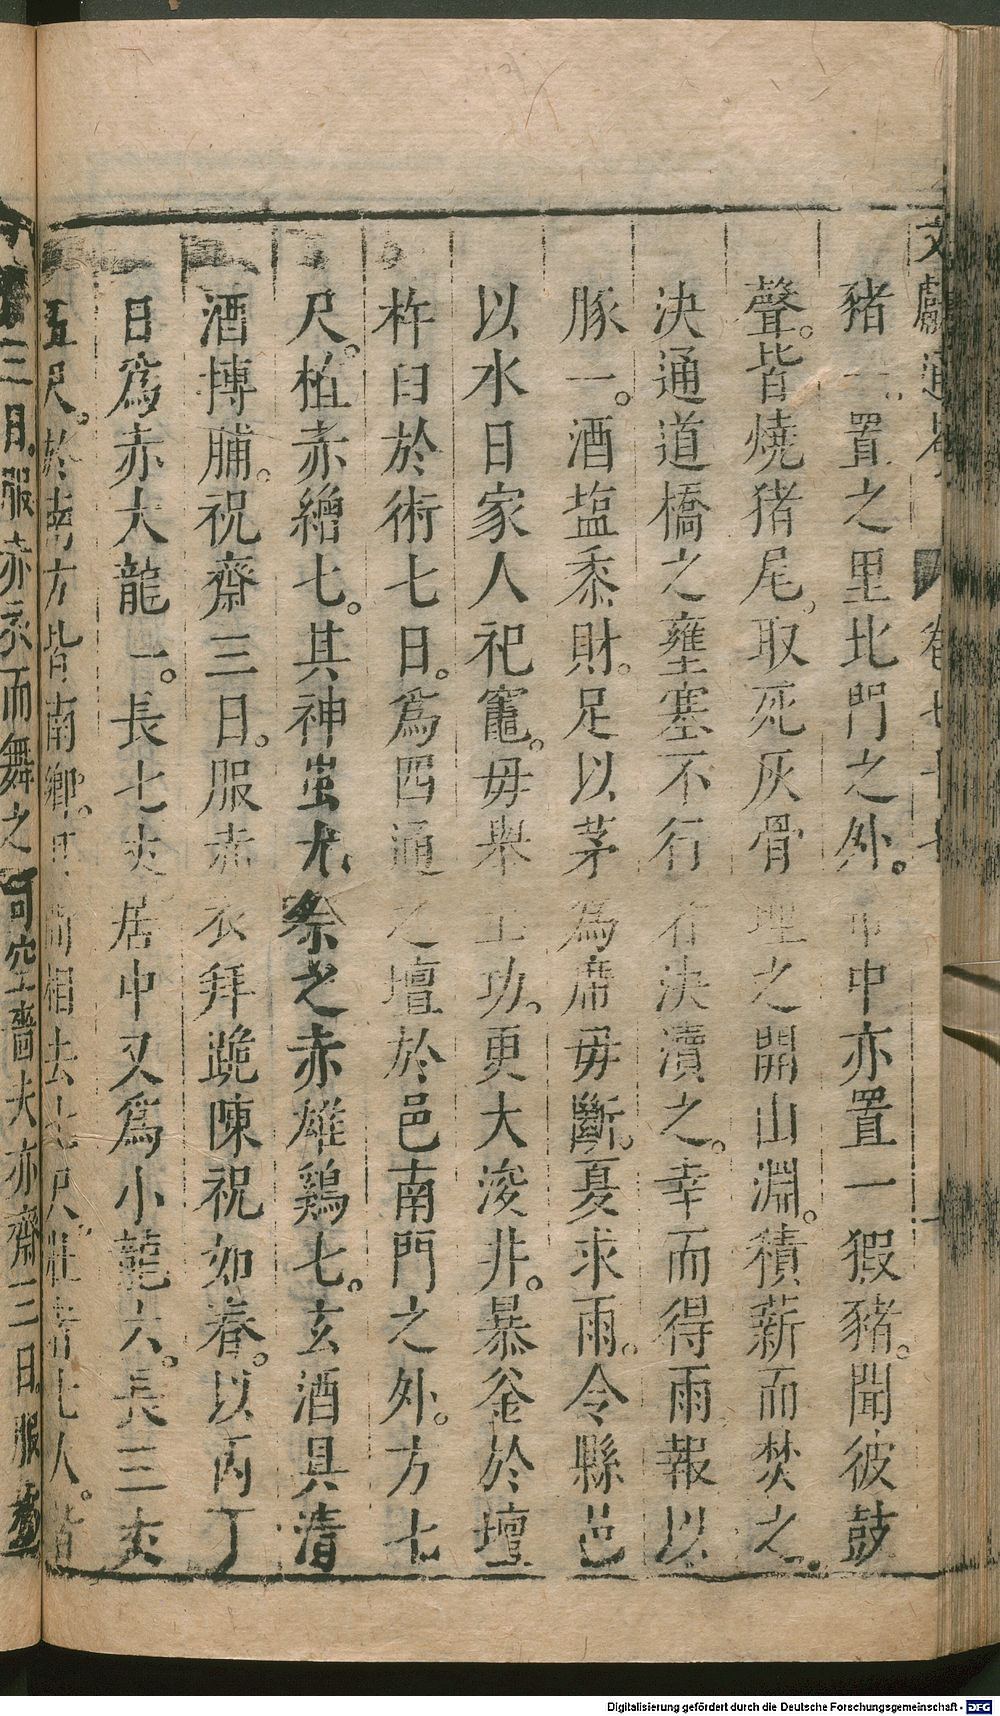 文獻通考 卷七十七
豬一置之里北門之外。市中亦置一猳豬。聞彼鼓
聲。皆燒猪尾。取死灰骨埋之開山淵。積薪而焚之。
決通道橋之壅塞不行者決瀆之。幸而得雨報以
豚一。酒塩黍財。足以茅為席毋斷。夏求雨。令縣邑
以水日家人祀竈。毋舉土功。更大浚井。暴釜於壇
杵臼於術七日。為四通之壇於邑南門之外。方七
尺。植赤繒七。其神蚩尤。祭之赤雄鷄七。玄酒具清
酒搏脯。祝齋三日。服赤衣拜跪陳祝如春。以丙丁
日為赤大龍一。長七丈居中又為小龍六。長三丈
五尺。於南方皆南鄉。其間相去七尺。壯者七人。皆
三日。服赤衣而舞之司空嗇夫亦齋三日。服
Digitalisierung gefördert durch die Deutsche Forschungsgemeinschaft - DFG